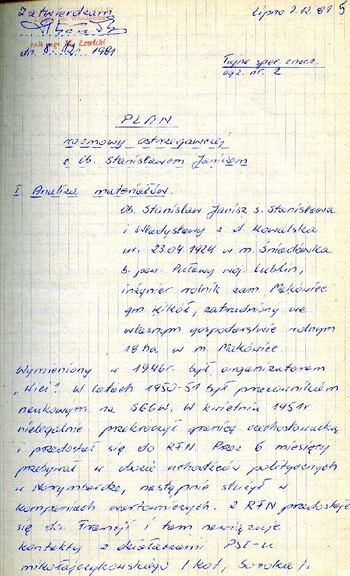 Zatwierdzam
Lipno 7.12.81 5
dn. 8.12. 1981
Tajne spec. znacz.
egz. nr. 2
PLAN
rozmowy ostrzegawczej
z ob. Stanisławem Janiszem
I Analiza materiałów.
Ob. Stanisław Janisz s. Stanisława
i Władysławy z d. Kowalska
ur. 23.04.1924 w m. Śniadówka
b. pow. Puławy woj. Lublin,
inżynier rolnik zam. Makówiec
gm. Kikół, zatrudniony we
własnym gospodarstwie rolnym
18 ha w m. Makówiec.
Wymieniony w 1946r. był organizatorem
„Wici". W latach 1950-51 był pracownikiem
naukowym na SGGW. W kwietniu 1951r
nielegalnie przekroczył granicę czechosłowacką
i przedostał się do RFN. Przez 6 miesięcy
przebywał w obozie uchodźców politycznych
w Norymberdze, następnie służył w
kompaniach wartowniczych. Z RFN przedostaje
się do Francji i tam nawiązuje
kontakty z działaczami PSL-u
mikołajczykowskiego / Kot, Soroka /.